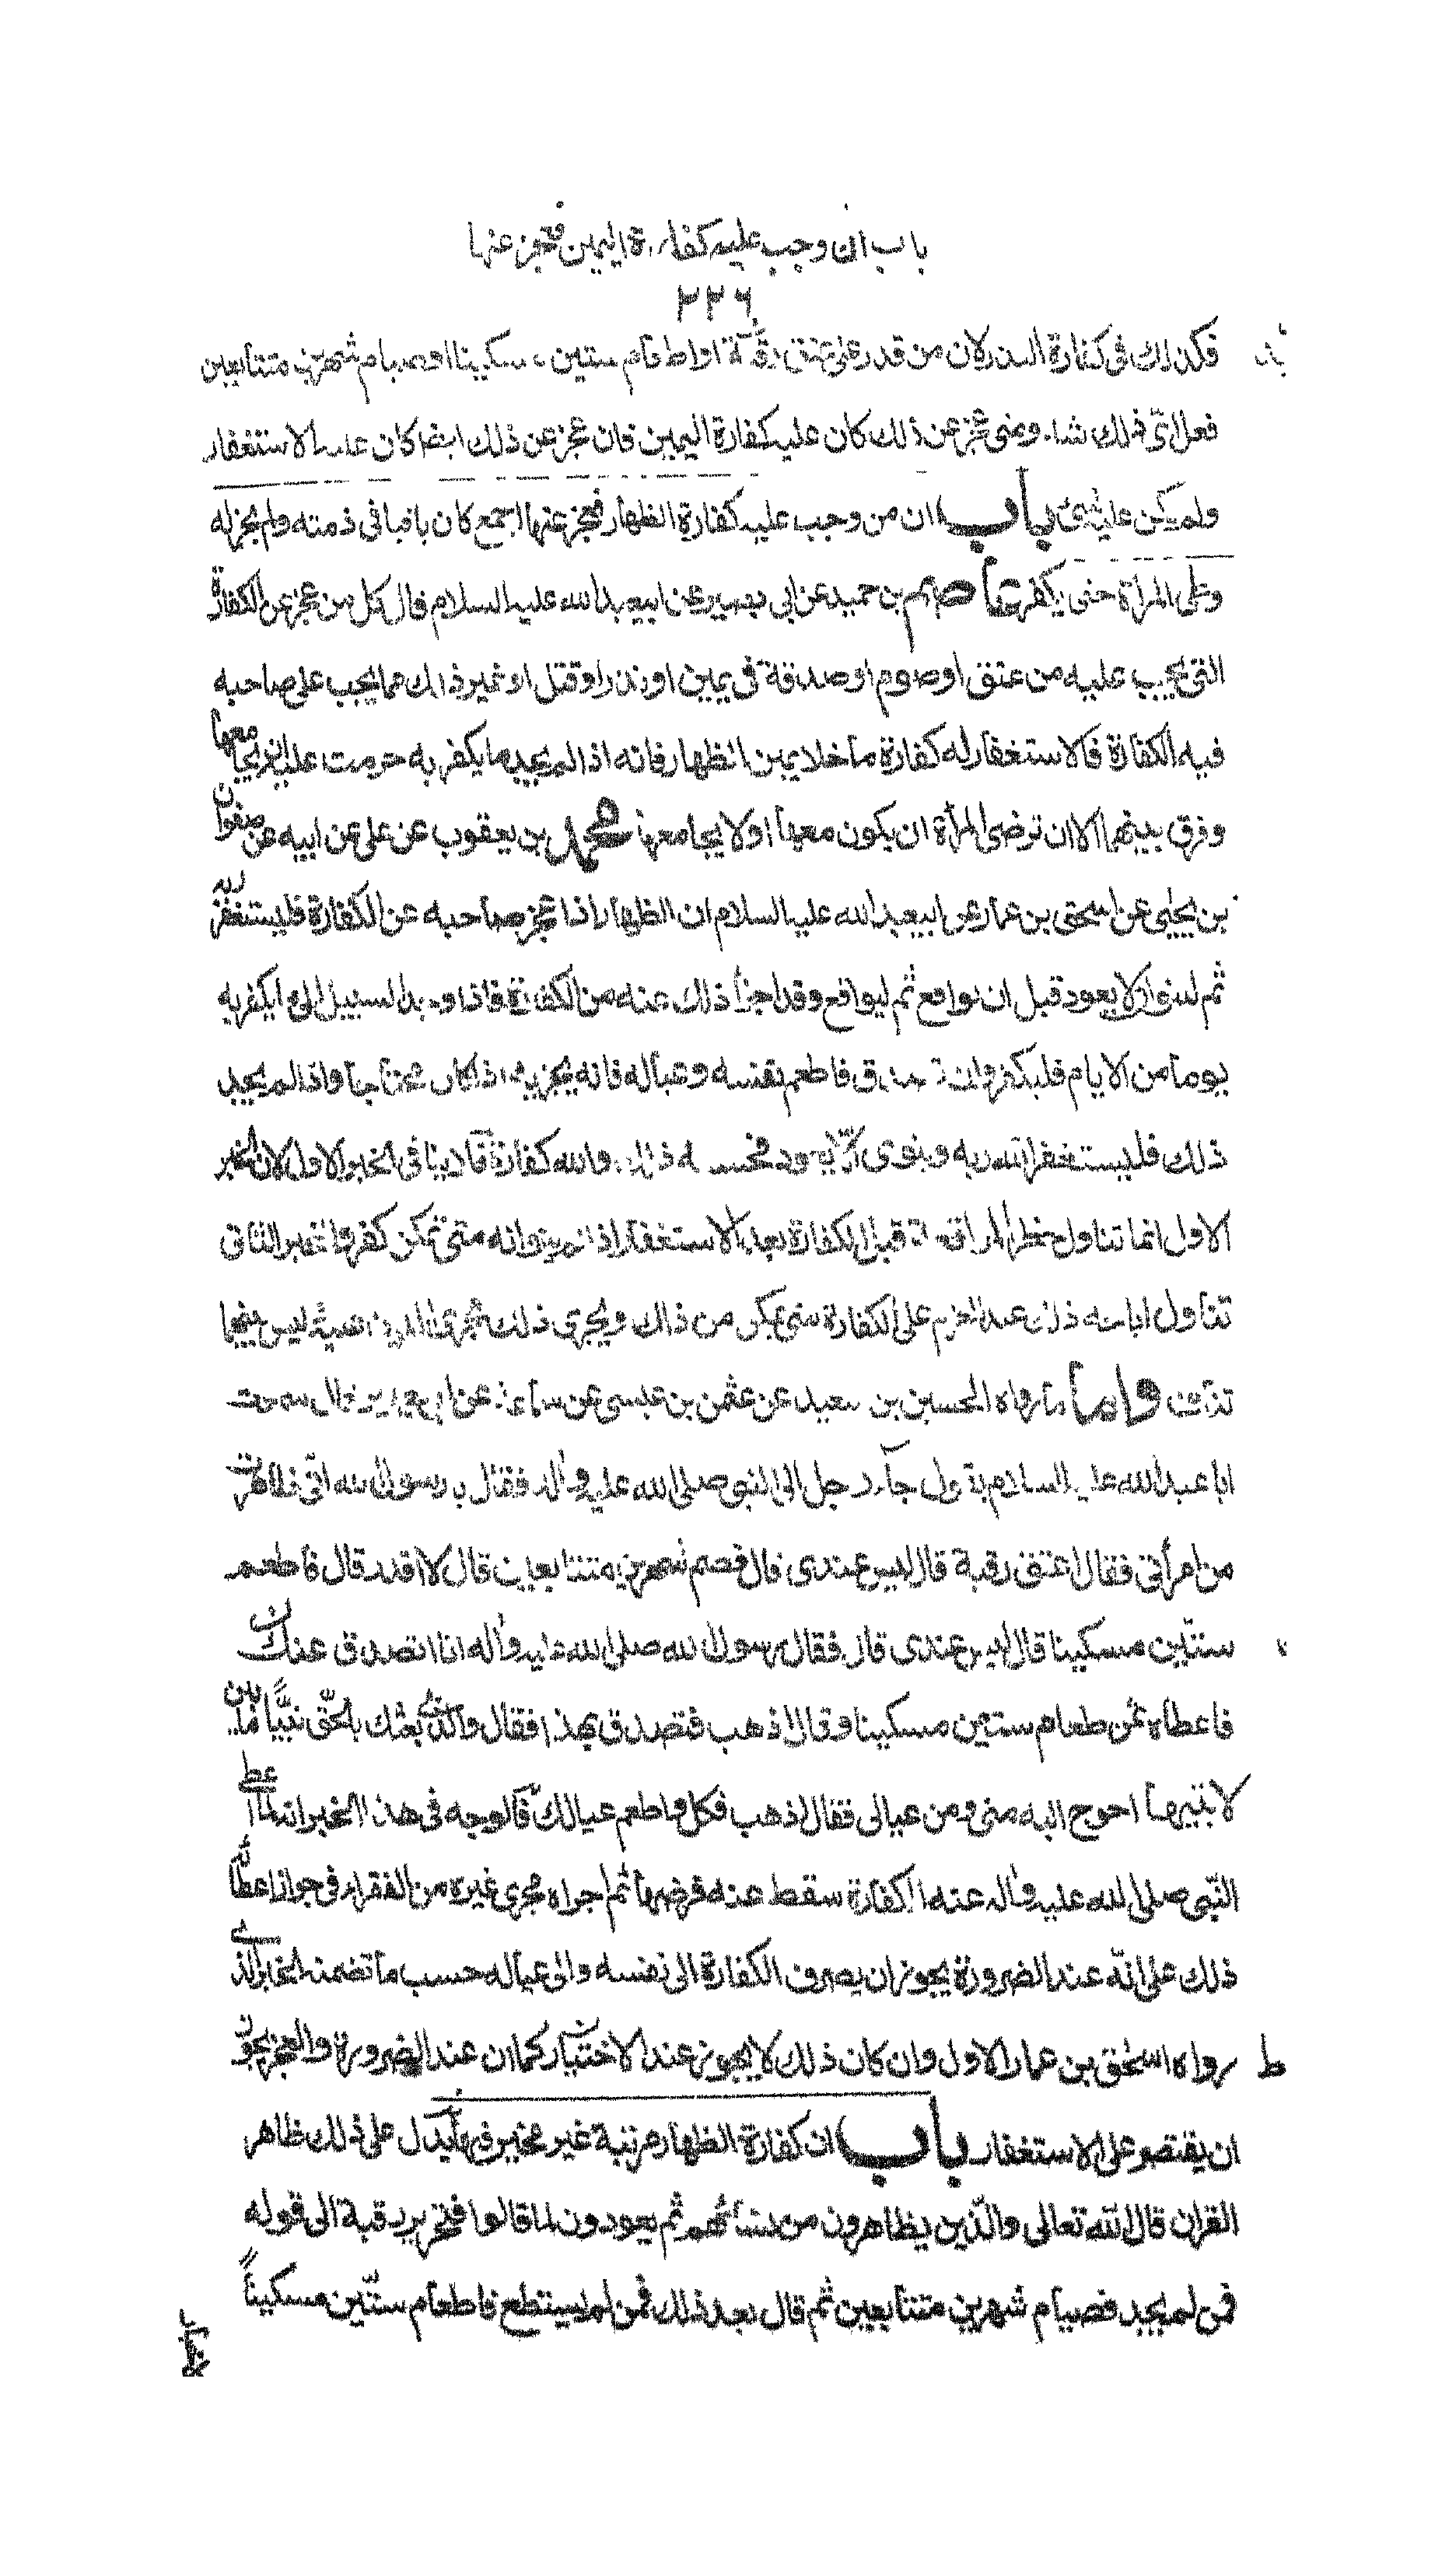 باب ان وجب عليه كفارة اليمين فعجز عنها
٢٢٦
فكذلك فى كفارة النذر لان من قدر على عتق رقبة او اطعام ستين مسكينا او صيام شهرين متتابعين
فعل اىّ ذلك شاء ومتى عجز عن ذلك كان عليه كفارة اليمين فان عجز عن ذلك ايضا كان عليه الاستغفار
ولم يكن عليه شئ باب ان من وجب عليه كفارة الظهار فعجز عنها اجمع كان باقيا فى ذمته ولم يجز له
وطى المراة حتى يكفر عاصم بن حميد عن ابى بصير عن ابيعبد الله عليه السلام قال كل من عجز عن الكفارة
التى تجب عليه من عتق او صوم او صدقة فى يمين او نذر او قتل او غير ذلك مما يجب على صاحبه
فيه الكفارة فالاستغفار له كفارة ما خلا يمين الظهار فانه اذا لم يجد ما يكفر به حرمت عليه ان يجامعها
وفرق بينهما الا ان ترضى المرأة ان يكون معها اولا يجامعها محمد بن يعقوب عن على عن ابيه عن صفوان
بن يحيى عن اسحق بن عمار عن ابيعبد الله عليه السلام ان الظهار اذا عجز صاحبه عن الكفارة فليستغفر ربه
ثم لينوا ان لا يعود قبل ان يواقع ثم ليواقع وقد اجزأ ذلك عنه من الكفارة فاذا وجد السبيل الى ما يكفر به
يوما من الايام فليكفر وان تصدق فاطعم نفسه وعياله فانه يجزيه اذا كان محتاجا واذا لم يجد
ذلك فليستغفر الله ربه وينوى ان لا يعود فحسبه ذلك والله كفارة فلا ينافى الخبر الاول لان الخبر
الاول انما تناول حظر المواقعة قبل الكفارة بعد الاستغفار اذا لم ينوانه متى تمكن كفر والخبر الثانى
تناول اباحته ذلك عند العزم على الكفارة متى تمكن من ذلك ويجرى ذلك مجرى الدين عليه ليس بينهما
تناف واما ما رواه الحسين بن سعيد عن عثمن بن عيسى عن سماعة عن ابى بصير قال سمعت
ابا عبد الله عليه السلام يقول جاء رجل الى النبى صلى الله عليه واله فقال يا رسول الله انى ظاهرت
من امرأتى فقال اعتق رقبة قال ليس عندى قال فصم شهرين متتابعين قال لا اقدر قال فاطعم
ستين مسكينا قال ليس عندى قال فقال رسول الله صلى الله عليه واله انا اتصدق عنك
فاعطاه ثمن طعام ستين مسكينا وقال اذهب فتصدق بهذا فقال والذى بعثك بالحق نبيّاً ما بين
لابتيها احوج اليه منى ومن عيالى فقال اذهب فكل واطعم عيالك فالوجه فى هذا الخبر انه لما اعطى
النبى صلى الله عليه واله عنه الكفارة سقط عنه فرضها ثم اجراه مجرى غيره من الفقراء فى جواز اعطائه
ذلك على انّه عند الضرورة يجوز ان يصرف الكفارة الى نفسه والى عياله حسب ما تضمنه الخبر الذى
ط رواه اسحق بن عمار الاول وان كان ذلك لا يجوز عند الاختيار كما ان عند الضرورة والعجز يجوز
ان يقتصر على الاستغفار باب ان كفارة الظهار مرتبة غير مخير فيها يدل على ذلك ظاهر
القران قال الله تعالى والّذين يظاهرون من نسائهم ثم يعودون لما قالوا فتحرير رقبة الى قوله
فمن لم يجد فصيام شهرين متتابعين ثم قال بعد ذلك فمن لم يستطع فاطعام ستّين مسكيناً